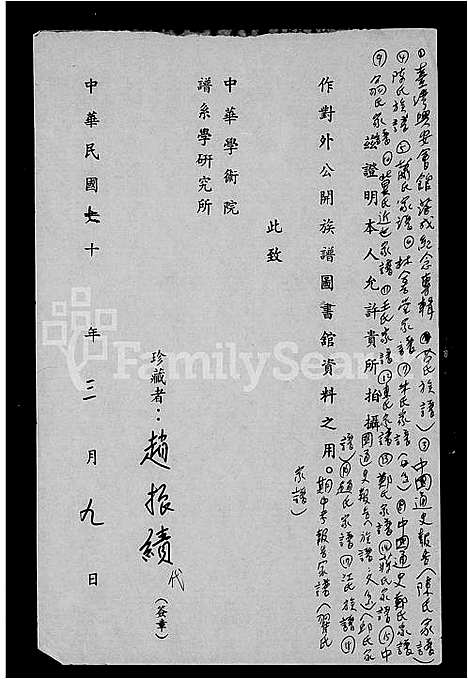 ①臺灣興安會館落成紀念專輯②黃氏族譜)③中國通史報告(陳氏家譜)
④陳氏族譜⑤蕭氏家譜⑥林善堂家譜⑦朱氏家譜⑧中國通史鄭氏家譜
⑨翁氏家譜⑩葉氏近世家譜⑪王氏家譜⑫陳氏家譜⑬鄭氏家譜⑭蔣氏家譜⑮中
國通史報告(族譜)邱氏家
譜)⑯趙氏家譜⑰江氏族譜⑱
期中考報告家譜(翟氏
家譜)
茲證明本人允許貴所拍攝
作對外公開族譜圖書館資料之用。
此致
中華學術院
譜系學研究所
珍藏者：趙振績代(簽章)
中華民國七十年三月九日
FamilySear